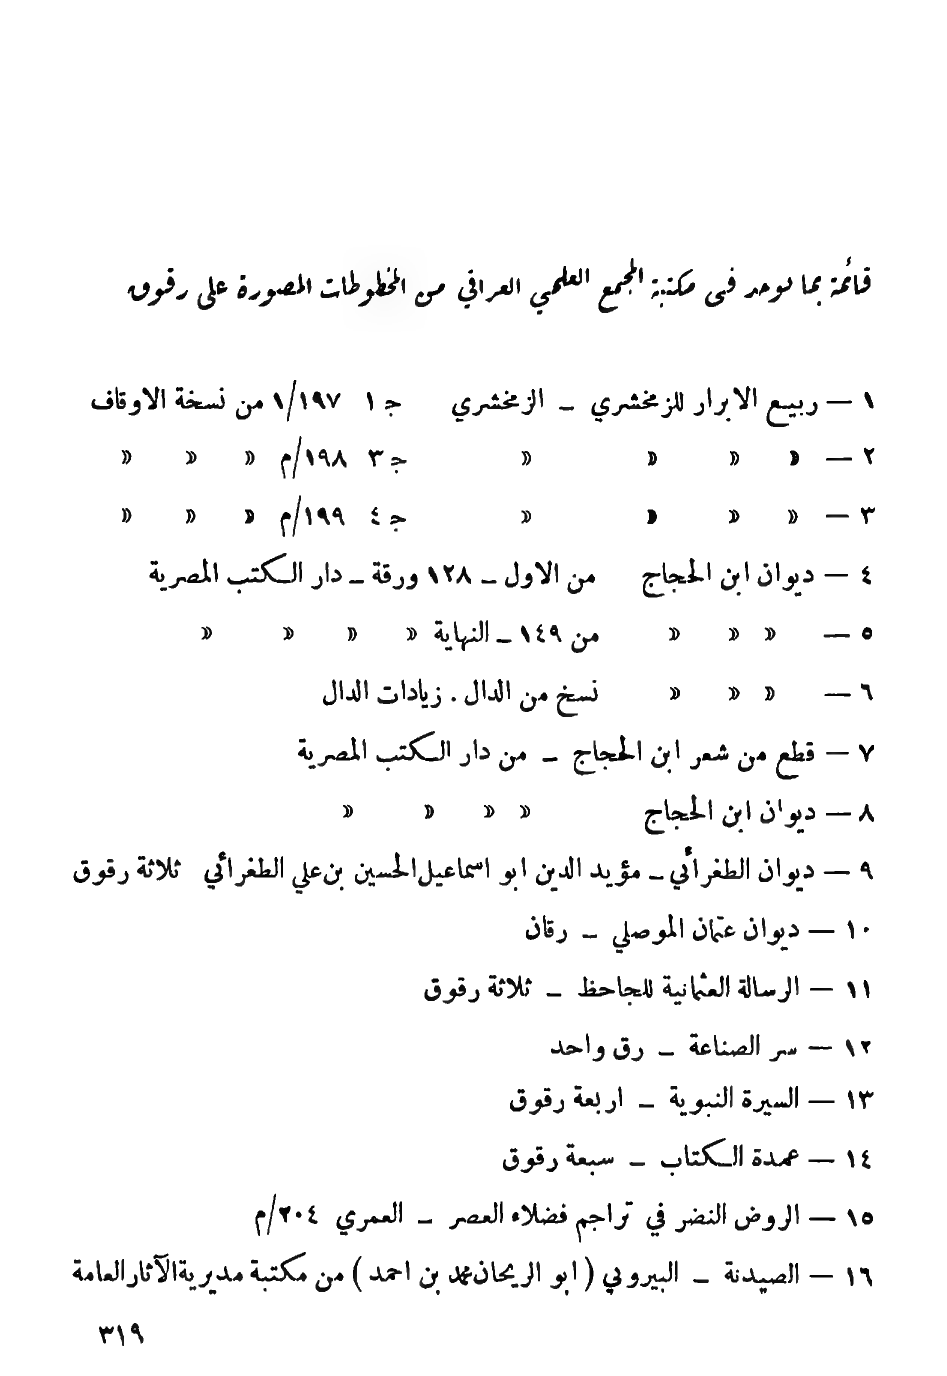 قائمة بما يوجد في مكتبة المجمع العلمي العراقي من المخطوطات المصورة على رقوق
١ — ربيع الابرار للزمخشري – الزمخشري ج ١ ١٩٧/١ من نسخة الاوقاف
٢ — » » » » ج ٣ ١٩٨/م » » »
٣ — » » » » ج ٤ ١٩٩/م » » »
٤ — ديوان ابن الحجاج من الاول – ١٢٨ ورقة – دار الكتب المصرية
٥ — » » » من ١٤٩ – النهاية » » » »
٦ — » » » نسخ من الدال . زيادات الدال
٧ — قطع من شعر ابن الحجاج – من دار الكتب المصرية
٨ — ديوان ابن الحجاج » » » »
٩ — ديوان الطغرائي – مؤيد الدين ابو اسماعيل الحسين بن علي الطغرائي ثلاثة رقوق
١٠ — ديوان عثمان الموصلي – رقان
١١ — الرسالة العثمانية للجاحظ – ثلاثة رقوق
١٢ — سر الصناعة – رق واحد
١٣ — السيرة النبوية – اربعة رقوق
١٤ — عمدة الكتاب – سبعة رقوق
١٥ — الروض النضر في تراجم فضلاء العصر – العمري ٢٠٤/م
١٦ — الصيدنة – البيروني ( ابو الريحان محمد بن احمد ) من مكتبة مديرية الآثار العامة
٣١٩